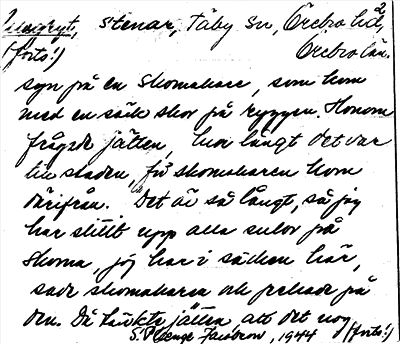 stenar, Täby sn, Örebro hd,
(forts!) Örebro län.
syn på en skomakare, som kom
med en säck skor på ryggen. Honom
frågade jätten, hur långt det var
till staden, för skomakaren kom
därifrån. Det är så långt, så jag
har slitit upp alla sulor på
skorna, jag har i säcken här,
sade skomakaren och pekade på
den. Då tänkte jätten att det nog
1944 (forts!)